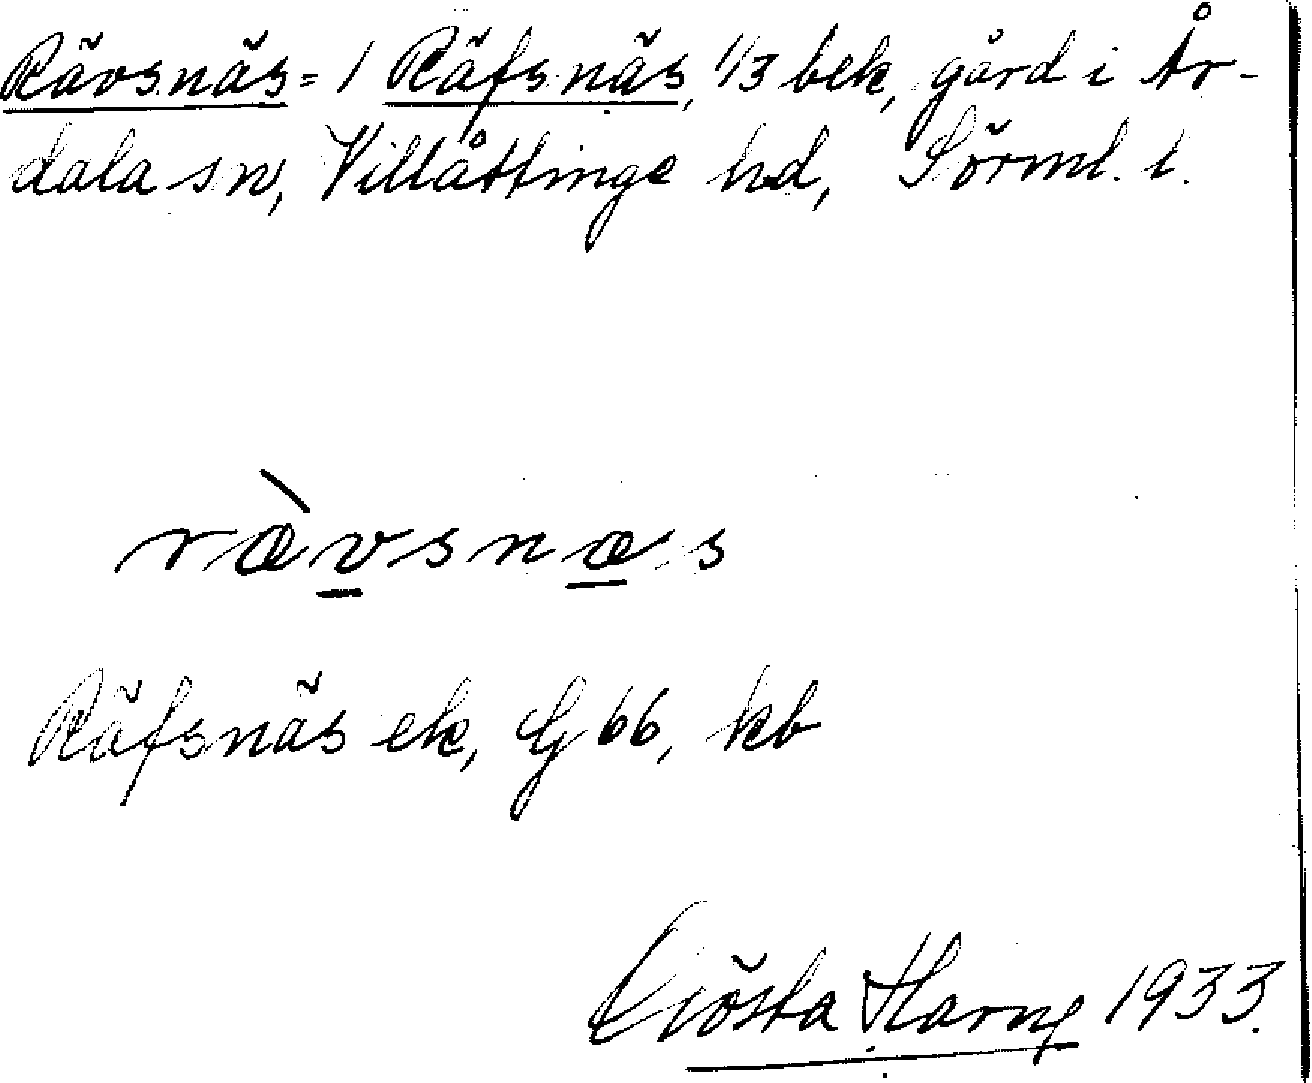 Rävsnäs = 1 Räfsnäs, 1/3 bek, gård i År-
dala sn, Villåttinge hd, Sörml. l.
ræ̀vsnæs
Räfsnäs ek, G 66, kb
Gösta Harng 1933.